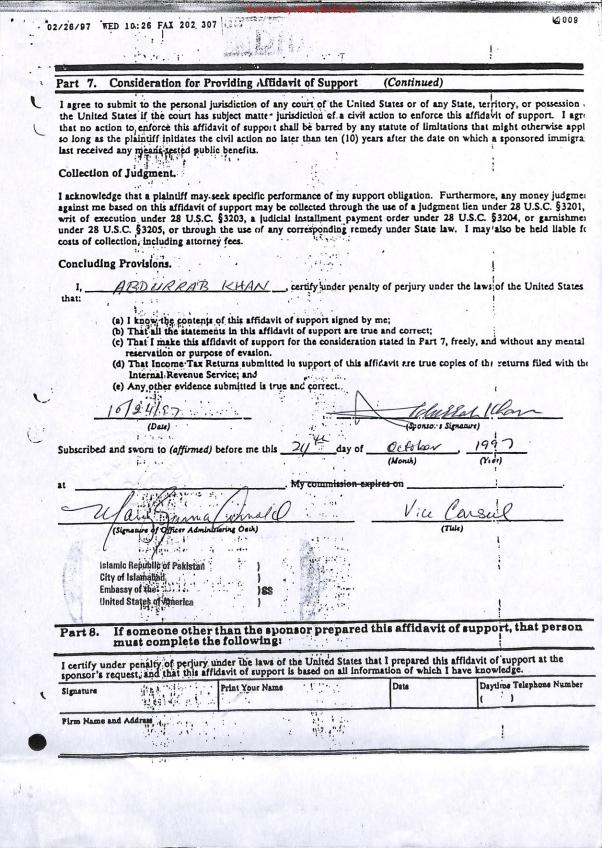 02/28/97 WED 10:26 FAX 202 307
009
Part 7. Consideration for Providing Affidavit of Support (Continued)
I agree to submit to the personal jurisdiction of any court of the United States or of any State, territory, or possession
the United States if the court has subject matter jurisdiction of a civil action to enforce this affidavit of support. I agr
that no action to enforce this affidavit of support shall be barred by any statute of limitations that might otherwise appl
so long as the plaintiff initiates the civil action no later than ten (10) years after the date on which a sponsored immigra
last received any means-tested public benefits.
Collection of Judgment.
I acknowledge that a plaintiff may seek specific performance of my support obligation. Furthermore, any money judgme
against me based on this affidavit of support may be collected through the use of a judgment lien under 28 U.S.C. §3201,
writ of execution under 28 U.S.C. §3203, a judicial installment payment order under 28 U.S.C. §3204, or garnishme
under 28 U.S.C. §3205, or through the use of any corresponding remedy under State law. I may also be held liable fo
costs of collection, including attorney fees.
Concluding Provisions.
I, ABDURRAB KHAN, certify under penalty of perjury under the laws of the United States
that:
(a) I know the contents of this affidavit of support signed by me;
(b) That all the statements in this affidavit of support are true and correct;
(c) That I make this affidavit of support for the consideration stated in Part 7, freely, and without any mental
reservation or purpose of evasion.
(d) That Income Tax Returns submitted in support of this affidavit are true copies of the returns filed with the
Internal Revenue Service; and
(e) Any other evidence submitted is true and correct.
10/24/97 Abdurrab Khan
(Date) (Sponsor's Signature)
Subscribed and sworn to (affirmed) before me this 24th day of October, 1997
(Month) (Year)
at . My commission expires on .
Vice Consul
(Signature of Officer Administering Oath) (Title)
Islamic Republic of Pakistan )
City of Islamabad )
Embassy of the )SS
United States of America )
Part 8. If someone other than the sponsor prepared this affidavit of support, that person
must complete the following:
I certify under penalty of perjury under the laws of the United States that I prepared this affidavit of support at the
sponsor's request, and that this affidavit of support is based on all information of which I have knowledge.
Signature Print Your Name Date Daytime Telephone Number
( )
Firm Name and Address